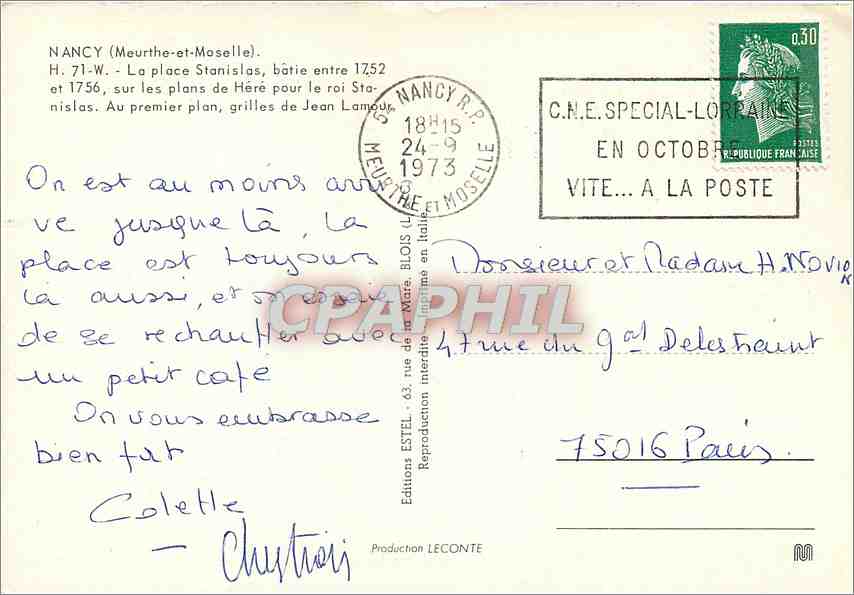 NANCY (Meurthe-et-Moselle).
H. 71-W. - La place Stanislas, bâtie entre 1752
et 1756, sur les plans de Héré pour le roi Sta-
nislas. Au premier plan, grilles de Jean Lamour.
On est au moins arri
ve jusque là, la
place est toujours
là aussi, et on essaie
de se rechauffer avec
un petit café
On vous embrasse
bien fort
Colette
54 NANCY R.P.
18H15
24-9
1973
MEURTHE ET MOSELLE
C.N.E. SPECIAL-LORRAINE
EN OCTOBRE
VITE... A LA POSTE
0,30
POSTES
REPUBLIQUE FRANÇAISE
Editions ESTEL - 63, rue de la Mare, BLOIS (L
Reproduction interdite Imprimé en Italie
Monsieur et Madame H. NOVION
47 rue du Gal Delestraint
75016 Paris.
Production LECONTE
CPAPHIL